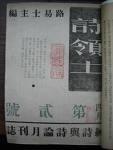 路易士主編
詩領土
第貳號
詩與詩論月刊誌